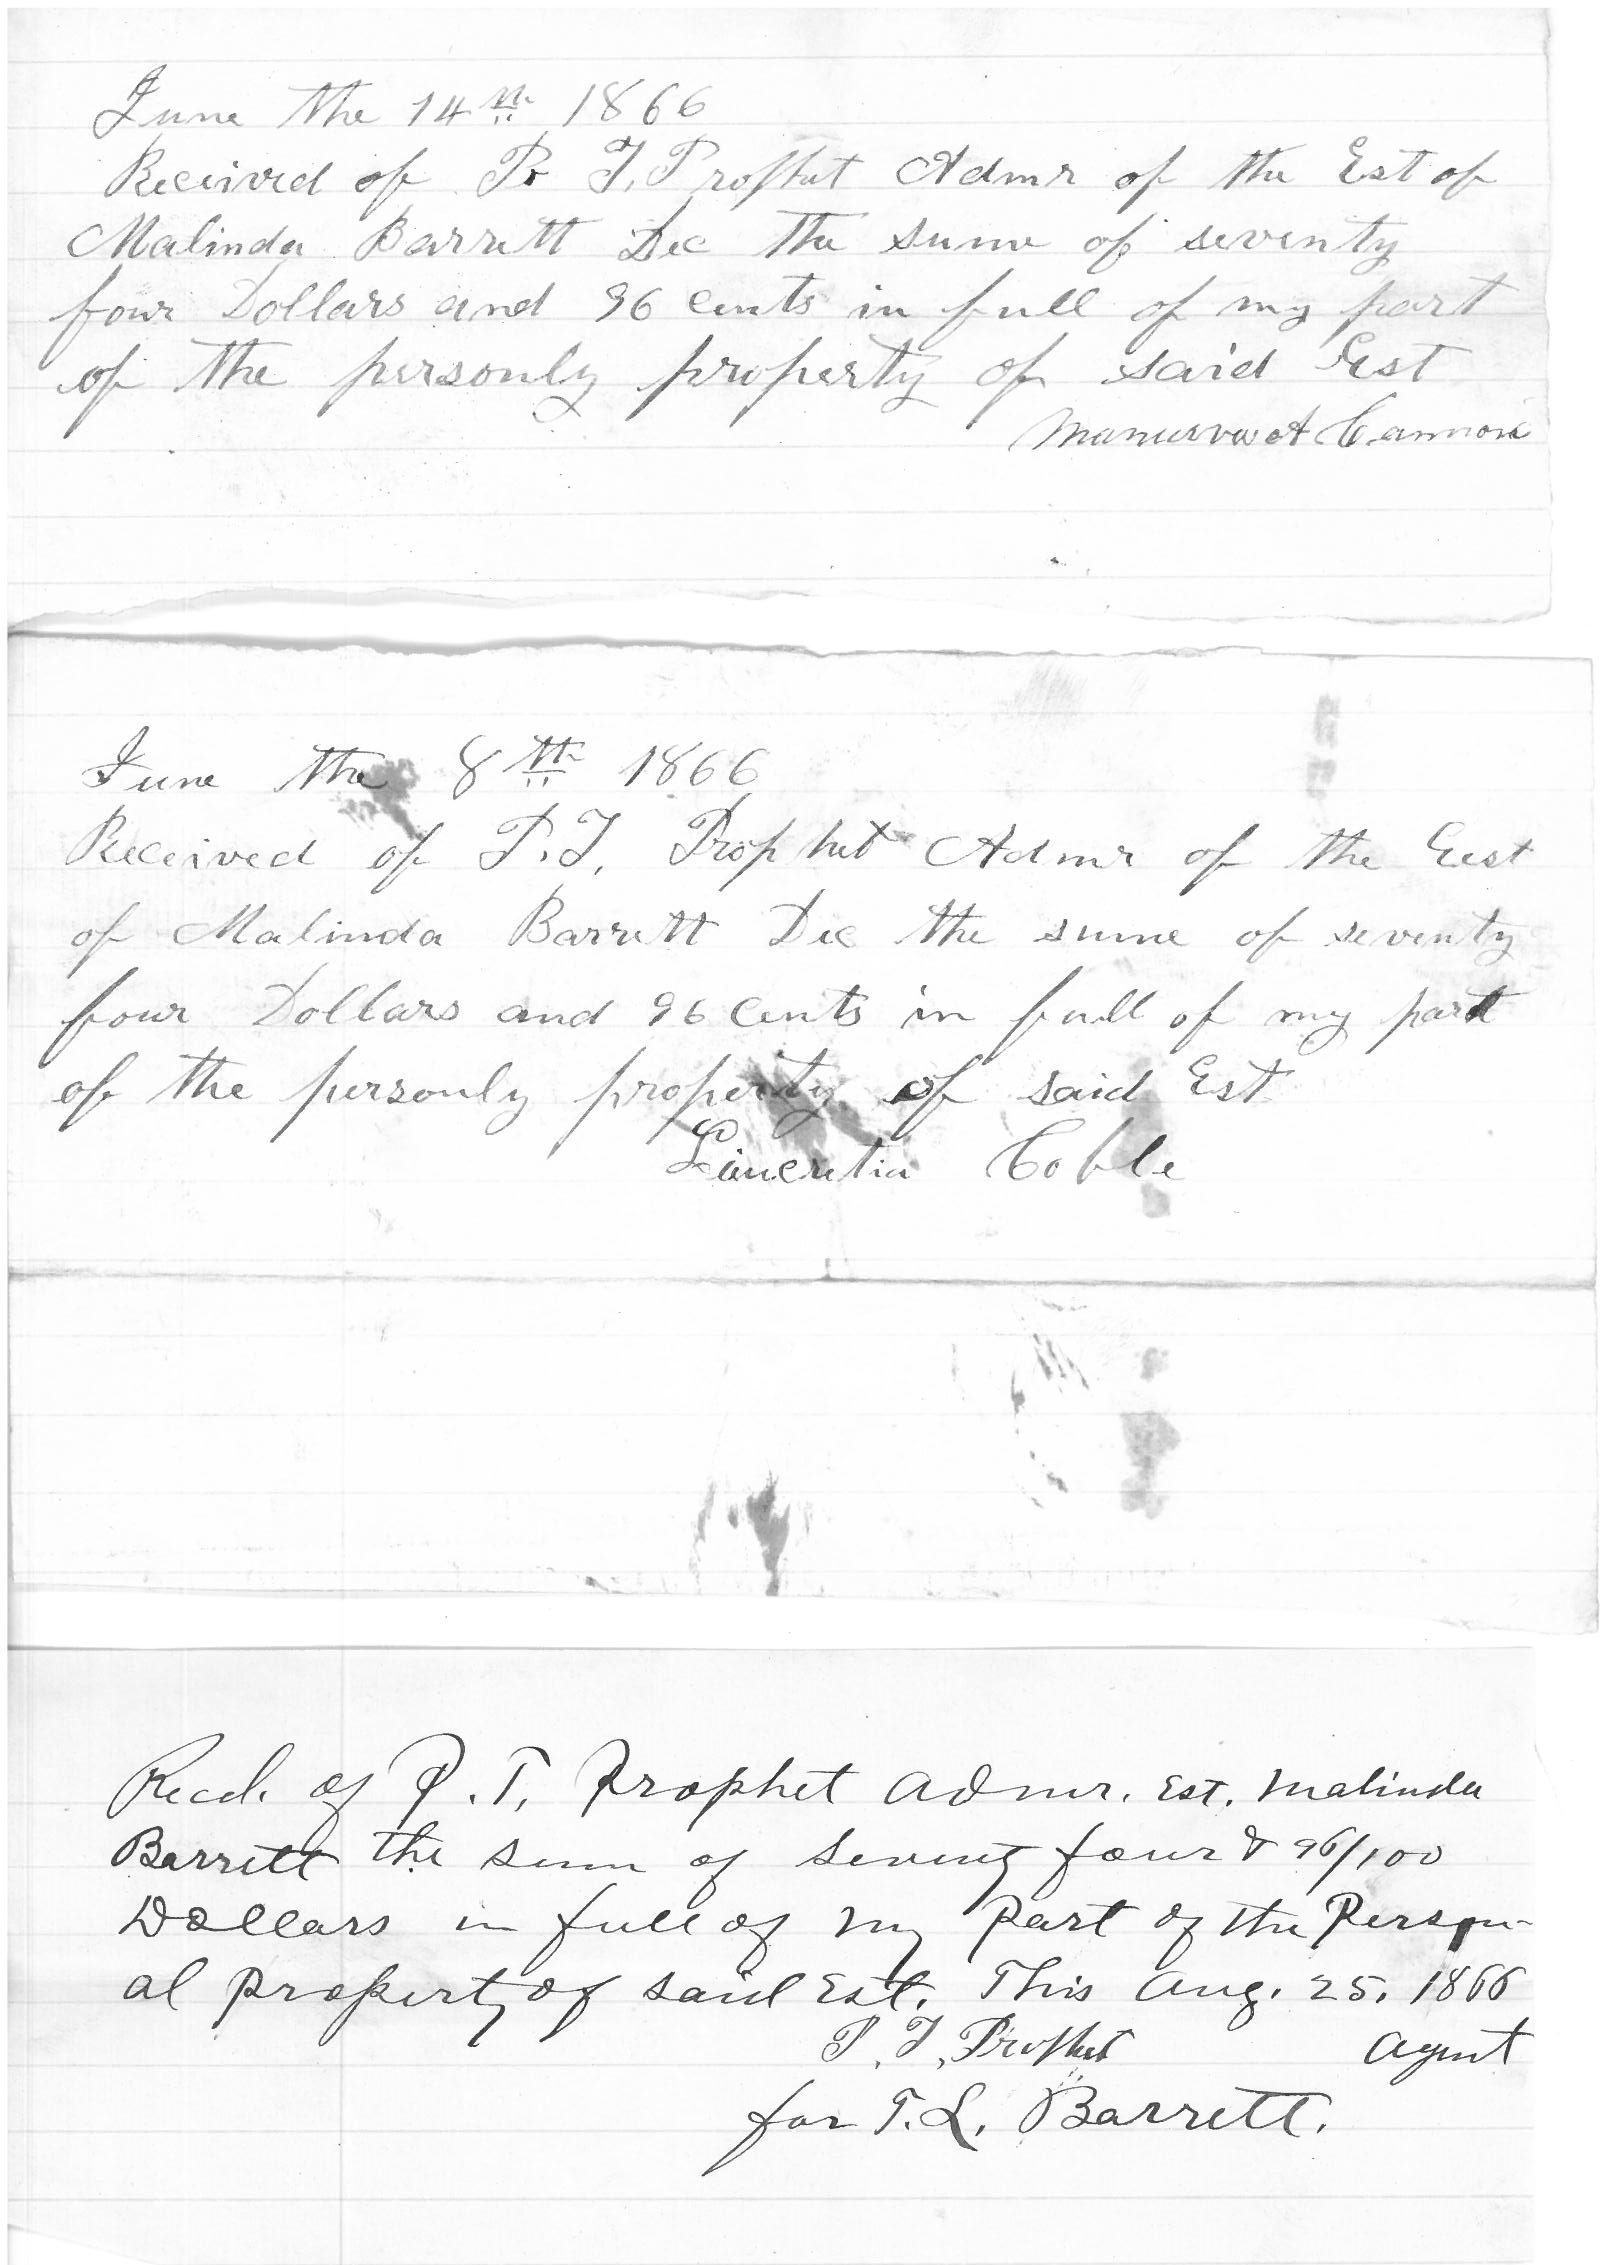 June the 14th 1866
Received of P. T. Prophet Admr of the Est of
Malinda Barrett Dec the sume of seventy
four Dollars and 96 cents in full of my part
of the personly property of said Est
Manurva A Cannon
June the 8th 1866
Received of P. T. Prophet Admr of the Eest
of Malinda Barrett Dec the sume of seventy
four Dollars and 96 cents in full of my part
of the personly property of said Est
Laucretia Coble
Recd. of P. T. Prophet Admr. Est. Malinda
Barrett the sum of seventy four & 96/100
Dollars in full of my part of the Person-
al property of said Est. This Aug. 25. 1866
P. T. Prophet Agent
for T. L. Barrett.